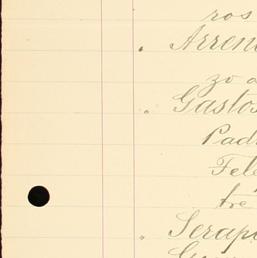 ros
Arren
zo a
Gastos
Pad
Fel
tre
Serap